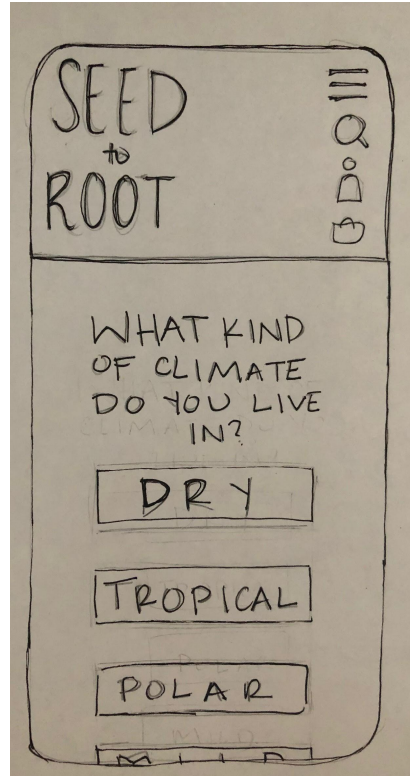 SEED
to
ROOT
WHAT KIND
OF CLIMATE
DO YOU LIVE
IN?
DRY
TROPICAL
POLAR
MILD